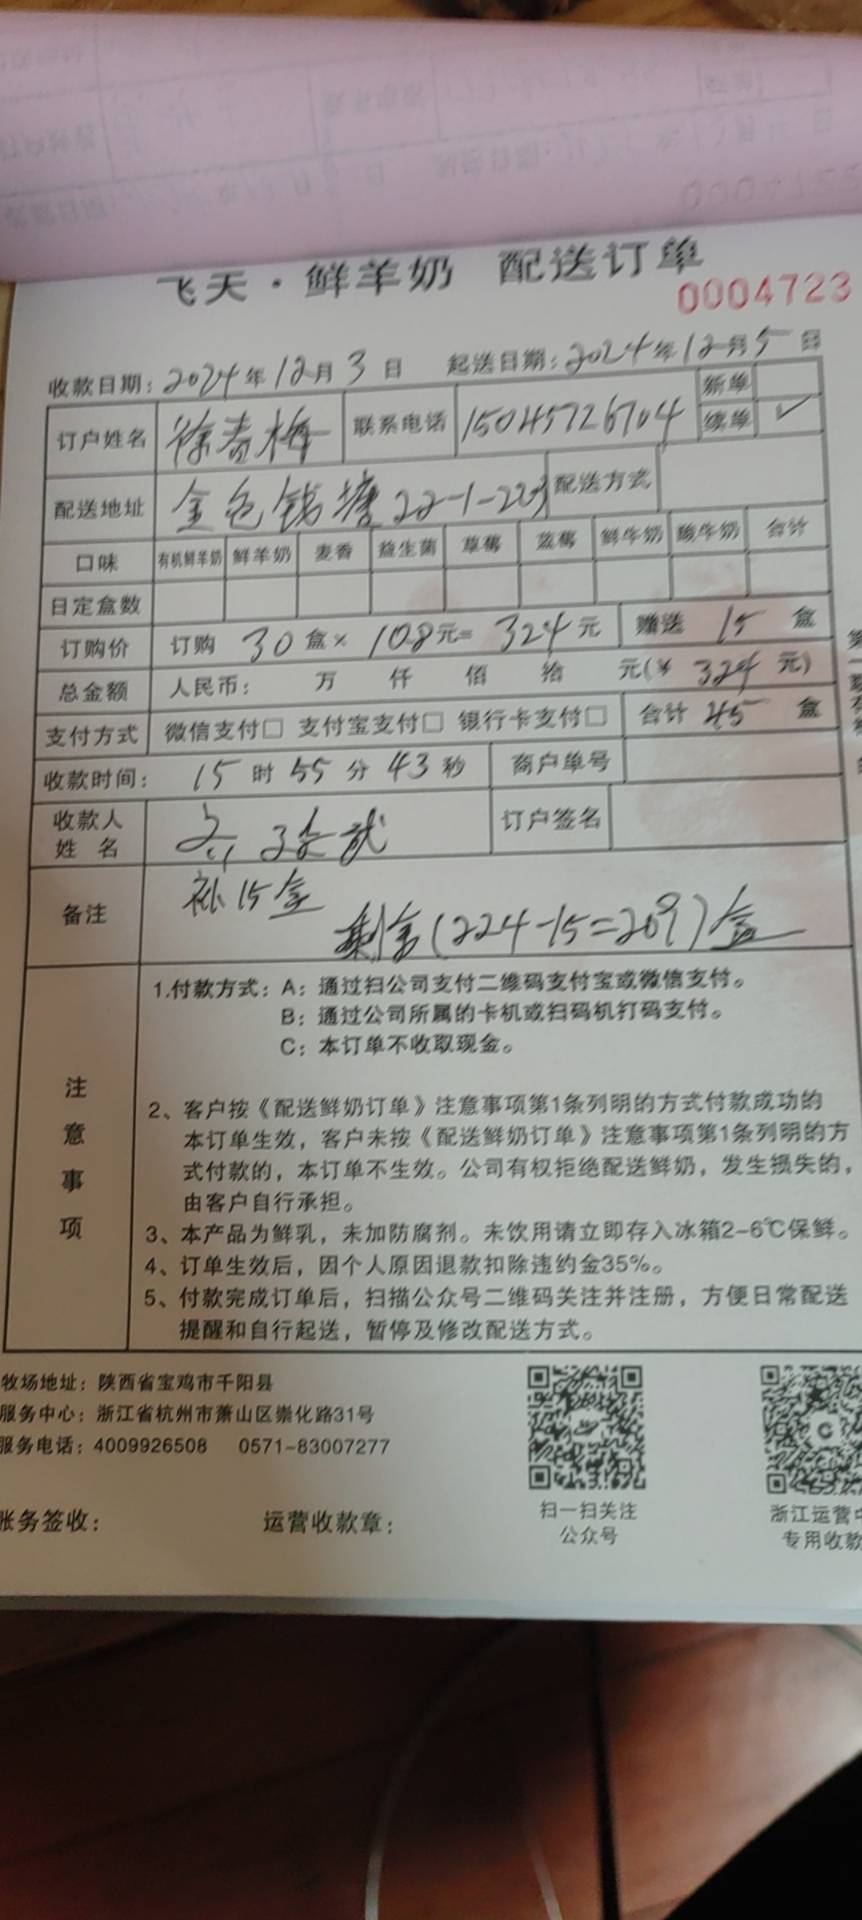 飞天·鲜羊奶 配送订单
0004723
收款日期：2024年12月3日 起送日期：2024年12月5日
订户姓名 徐春梅 联系电话 15045726704 新单
续单 ✓
配送地址 金色钱塘22-1-223 配送方式
口味 有机鲜羊奶 鲜羊奶 麦香 益生菌 草莓 蓝莓 鲜牛奶 酸牛奶 合计
日定盒数
订购价 订购 30 盒× 108元= 324元 赠送 15 盒
总金额 人民币： 万 仟 佰 拾 元(￥ 324 元)
支付方式 微信支付□ 支付宝支付□ 银行卡支付□ 合计 45 盒
收款时间： 15时55分43秒 商户单号
收款人
姓 名
订户签名
备注 补15盒
剩余(224-15=209)盒
注意事项
1.付款方式：A：通过扫公司支付二维码支付宝或微信支付。
B：通过公司所属的卡机或扫码机打码支付。
C：本订单不收取现金。
2、客户按《配送鲜奶订单》注意事项第1条列明的方式付款成功的
本订单生效，客户未按《配送鲜奶订单》注意事项第1条列明的方
式付款的，本订单不生效。公司有权拒绝配送鲜奶，发生损失的，
由客户自行承担。
3、本产品为鲜乳，未加防腐剂。未饮用请立即存入冰箱2-6℃保鲜。
4、订单生效后，因个人原因退款扣除违约金35%。
5、付款完成订单后，扫描公众号二维码关注并注册，方便日常配送
提醒和自行起送，暂停及修改配送方式。
牧场地址：陕西省宝鸡市千阳县
服务中心：浙江省杭州市萧山区崇化路31号
服务电话：4009926508 0571-83007277
扫一扫关注
公众号
浙江运营中
专用收款
账务签收： 运营收款章：